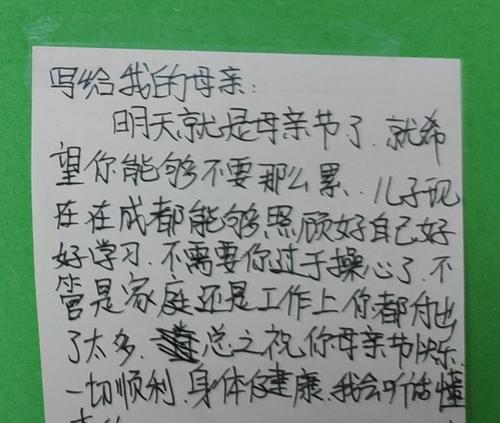 写给我的母亲:
明天就是母亲节了.就希
望你能够不要那么累.儿子现
在在成都能够照顾好自己好
好学习.不需要你过于操心了.不
管是家庭还是工作上你都付出
了太多.总之祝你母亲节快乐.
一切顺利.身体健康.我会听话懂